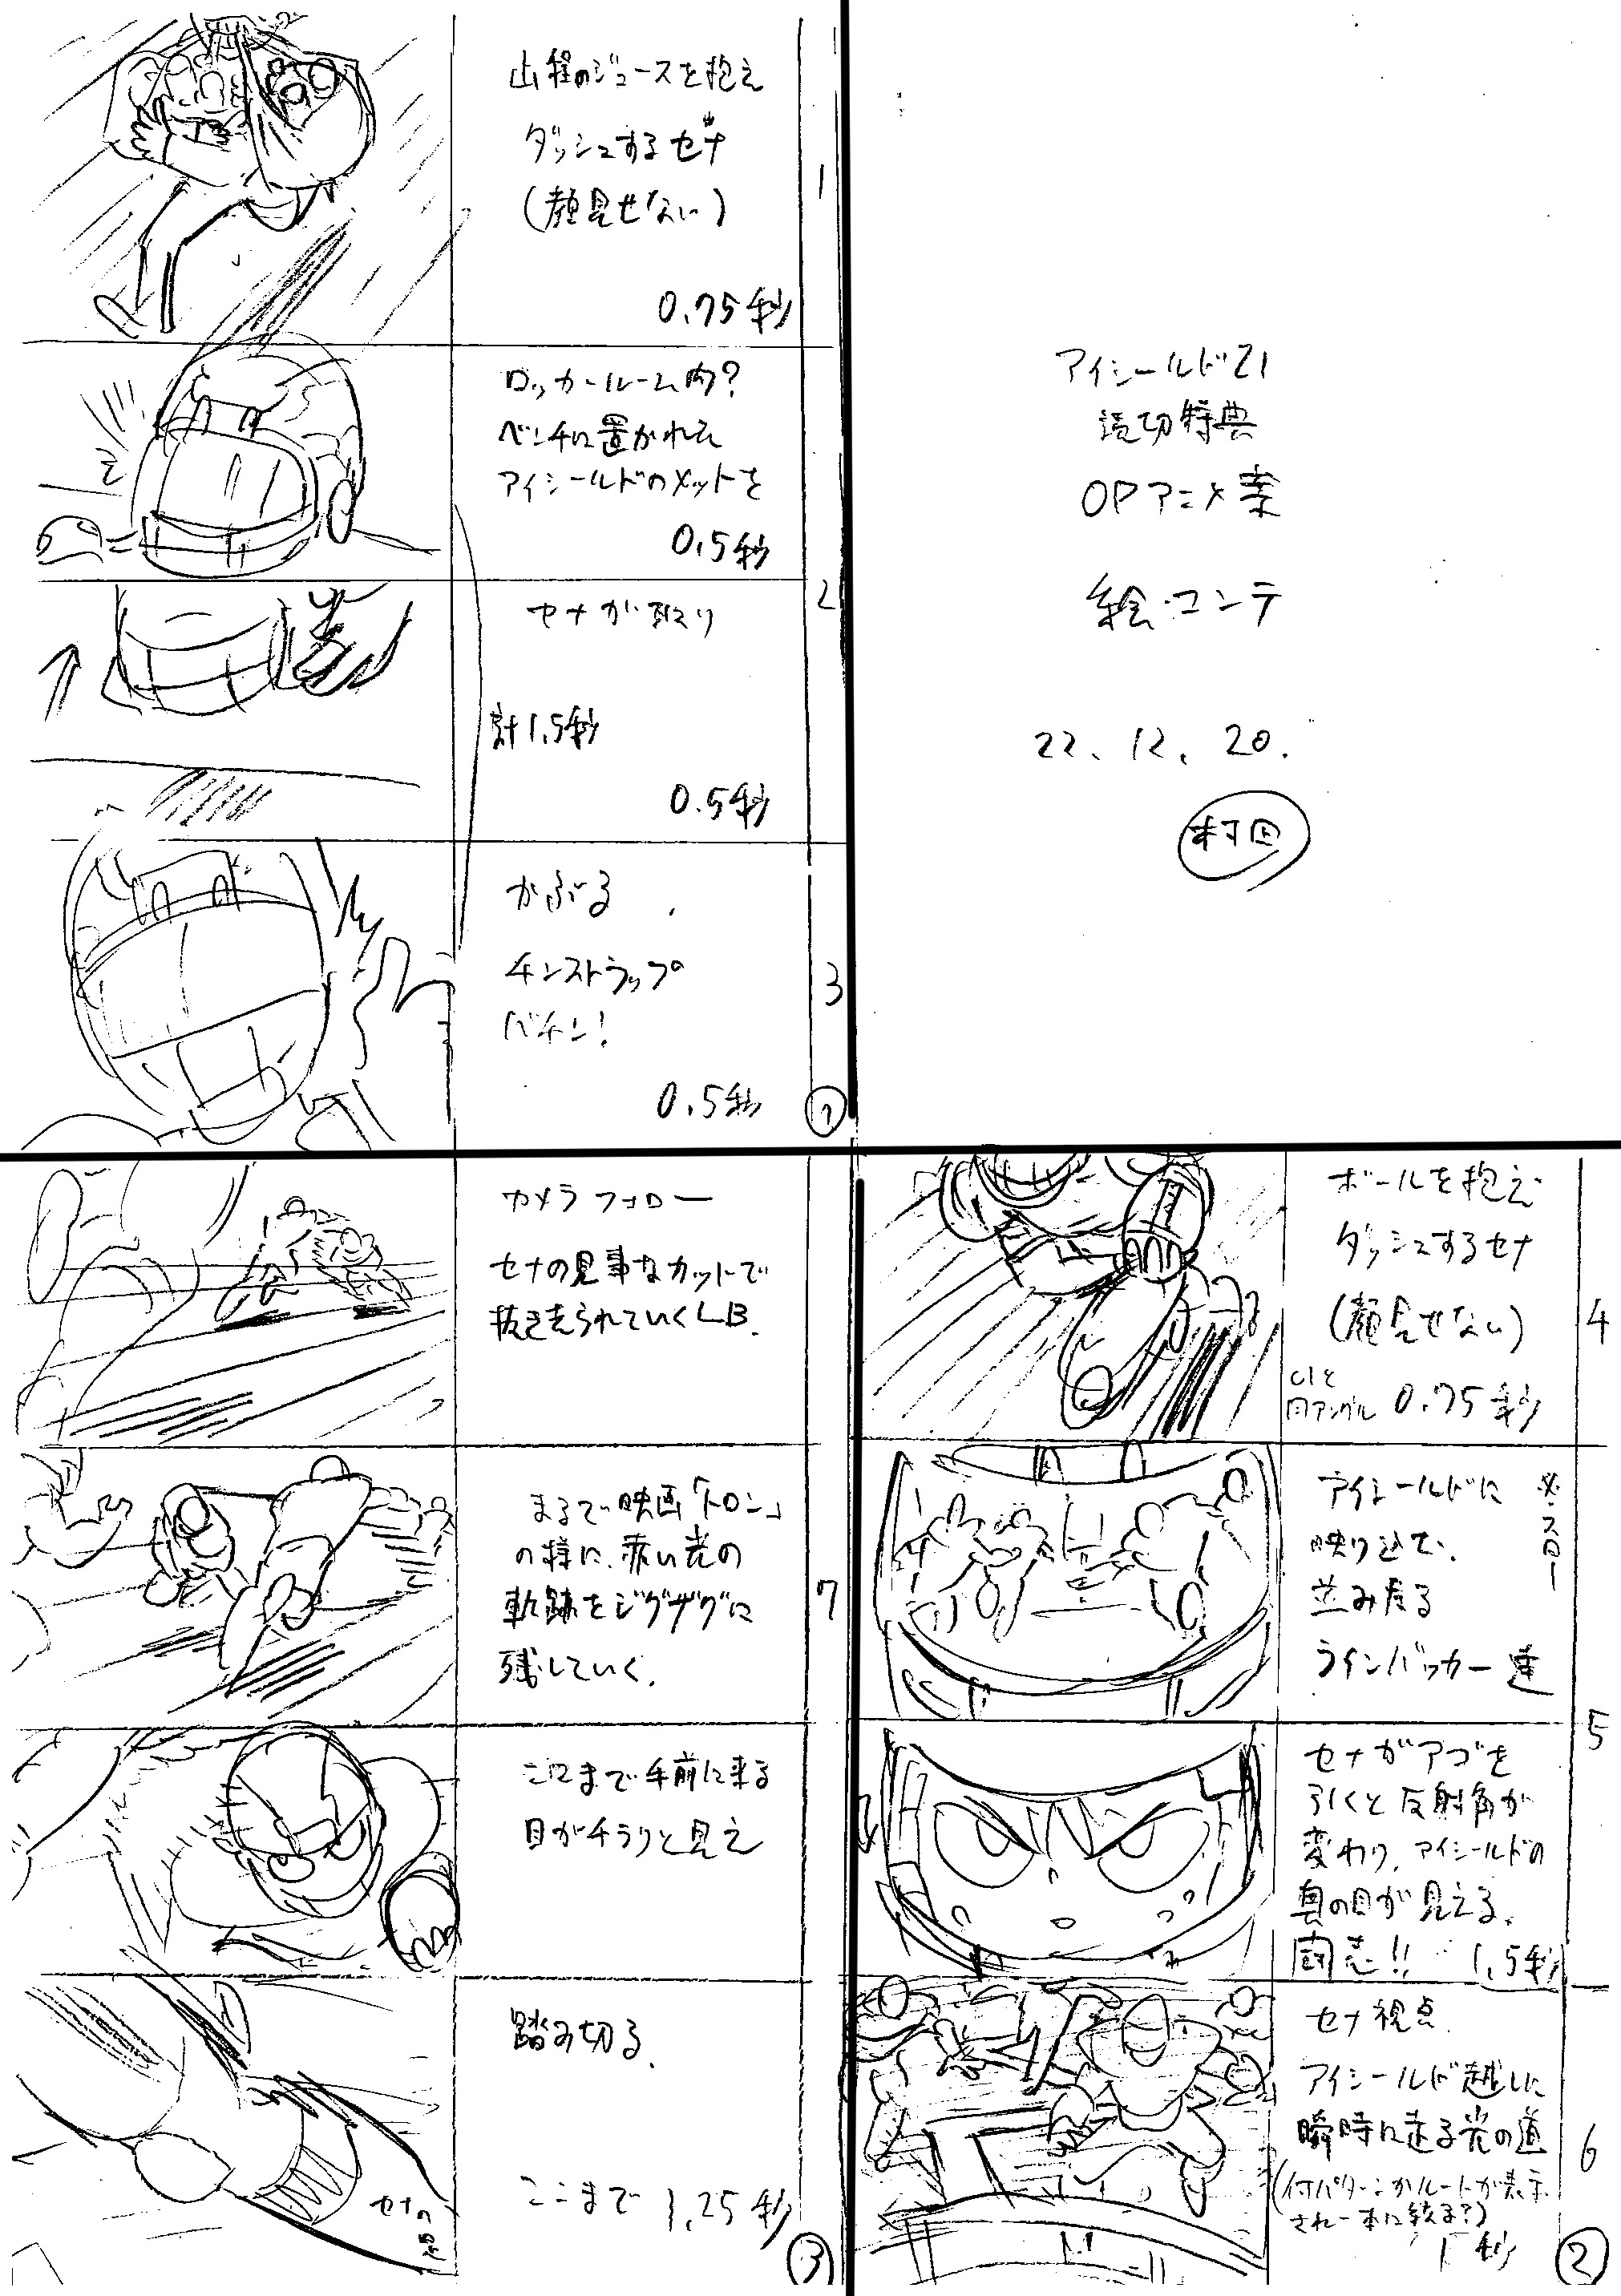 アイシールド21
読切特典
OPアニメ案
絵コンテ
22、12、20.
村田
1
山程のジュースを抱え
ダッシュするセナ
(顔見せない)
0.75秒
2
ロッカールーム内?
ベンチに置かれた
アイシールドのメットを
0.5秒
セナが取り
計1.5秒
0.5秒
3
かぶる
チンストラップ
バチン!
0.5秒
①
4
ボールを抱え
ダッシュするセナ
(顔見せない)
C1と
同アングル 0.75秒
5
アイシールドに
映り込む、
並み居る
ラインバッカー達
※スロー
セナがアゴを
引くと反射角が
変わり、アイシールドの
奥の目が見える。
闘志!! 1.5秒
6
セナ視点
アイシールド越しに
瞬時に走る光の道
(何パターンかルートが表示
され一本に絞る?)
1秒
②
7
カメラフォロー
セナの見事なカットで
抜き去られていくLB.
まるで映画「トロン」
の様に、赤い光の
軌跡をジグザグに
残していく。
ここまで手前に来る
目がチラリと見え
踏み切る。
セナの
脚
ここまで 1.25秒
③